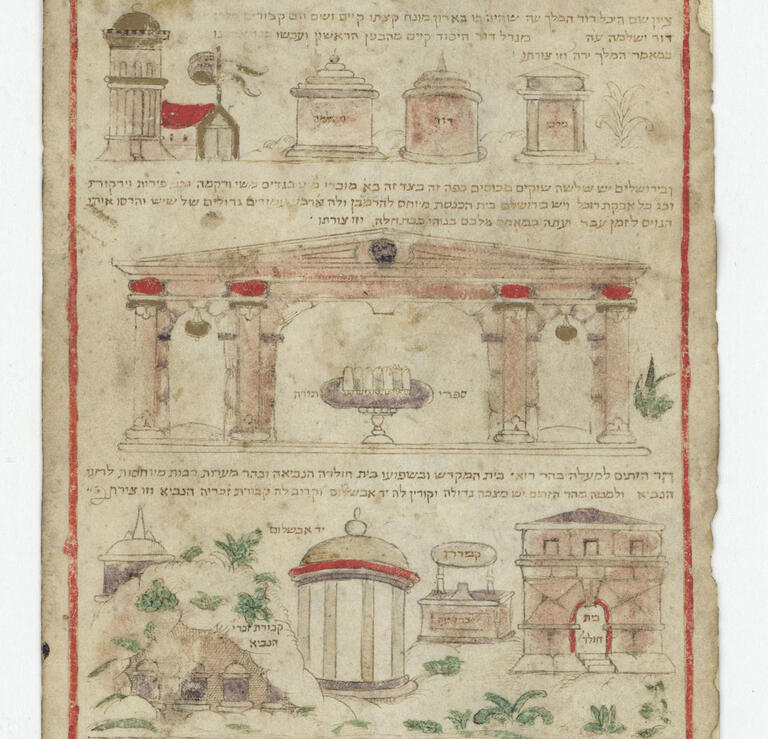 ציון שם היכל דוד המלך עה
דוד ושלמה עה מגדל דוד היסוד קיים מהבנין הראשון ועכשו
במאמר המלך ירה וזו צורתו
שלמה
דוד
ובירושלים יש שלשה שוקים מכוסים כפה זה בצד זה בא מוכרי מיני בגדים משי ורקמה ובב פירות וירקות
ובג כל אבקת רוכל ויש בירושלם בית הכנסת מיוחס להרמבן ולה ארבע עמודים גדולים של שיש והרסו אותו
הגוים לזמן עבר ועתה במאמר מלכם בנוהו כבתחלה וזו צורתו
ספרי תורה
והר הזתים למעלה בהר רואי בית המקדש ובשפועו בית חולדה הנביאה ובהר מערות רבות מיוחסות לחגי
הנביא ולמטה מהר הזתים יש מצבה גדולה וקורין לה יד אבשלום וקרוב לה קבורת זכריה הנביא וזו צורתן
יד אבשלום
קבורת זכרי
הנביא
בית
חולד